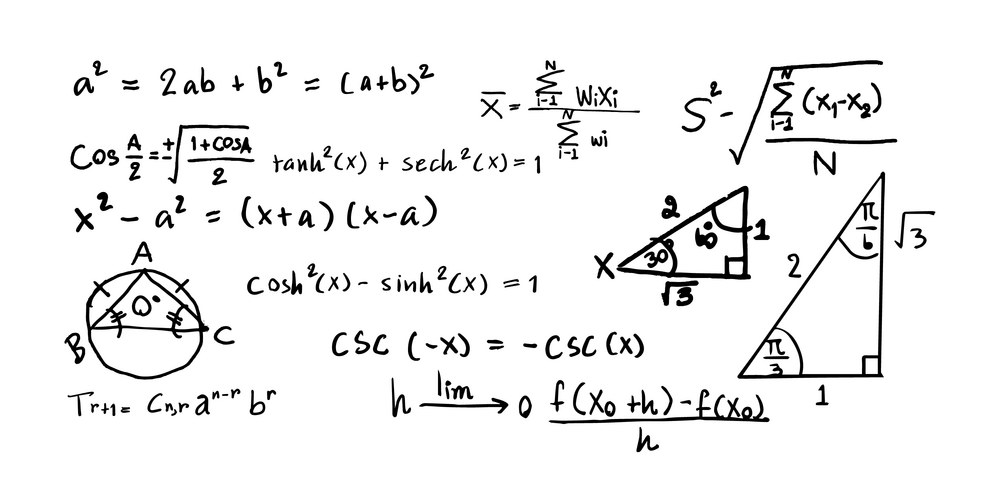 a² = 2ab + b² = (a+b)²
X̄ = ∑ᴺᵢ₋₁ WiXi / ∑ᴺᵢ₋₁ wi
S² - √∑ᴺᵢ₋₁ (x₁-x₂) / N
Cos A/2 = ±√1+cosA / 2
tanh²(x) + sech²(x) = 1
x² - a² = (x+a) (x-a)
2
1
60°
X
30°
√3
π/6
√3
2
π/3
1
A
O°
B
C
cosh²(x) - sinh²(x) = 1
csc (-x) = -csc(x)
Tr+1= Cn,r aⁿ⁻ʳ bʳ
h lim→ 0 f(x₀+h)-f(x₀) / h